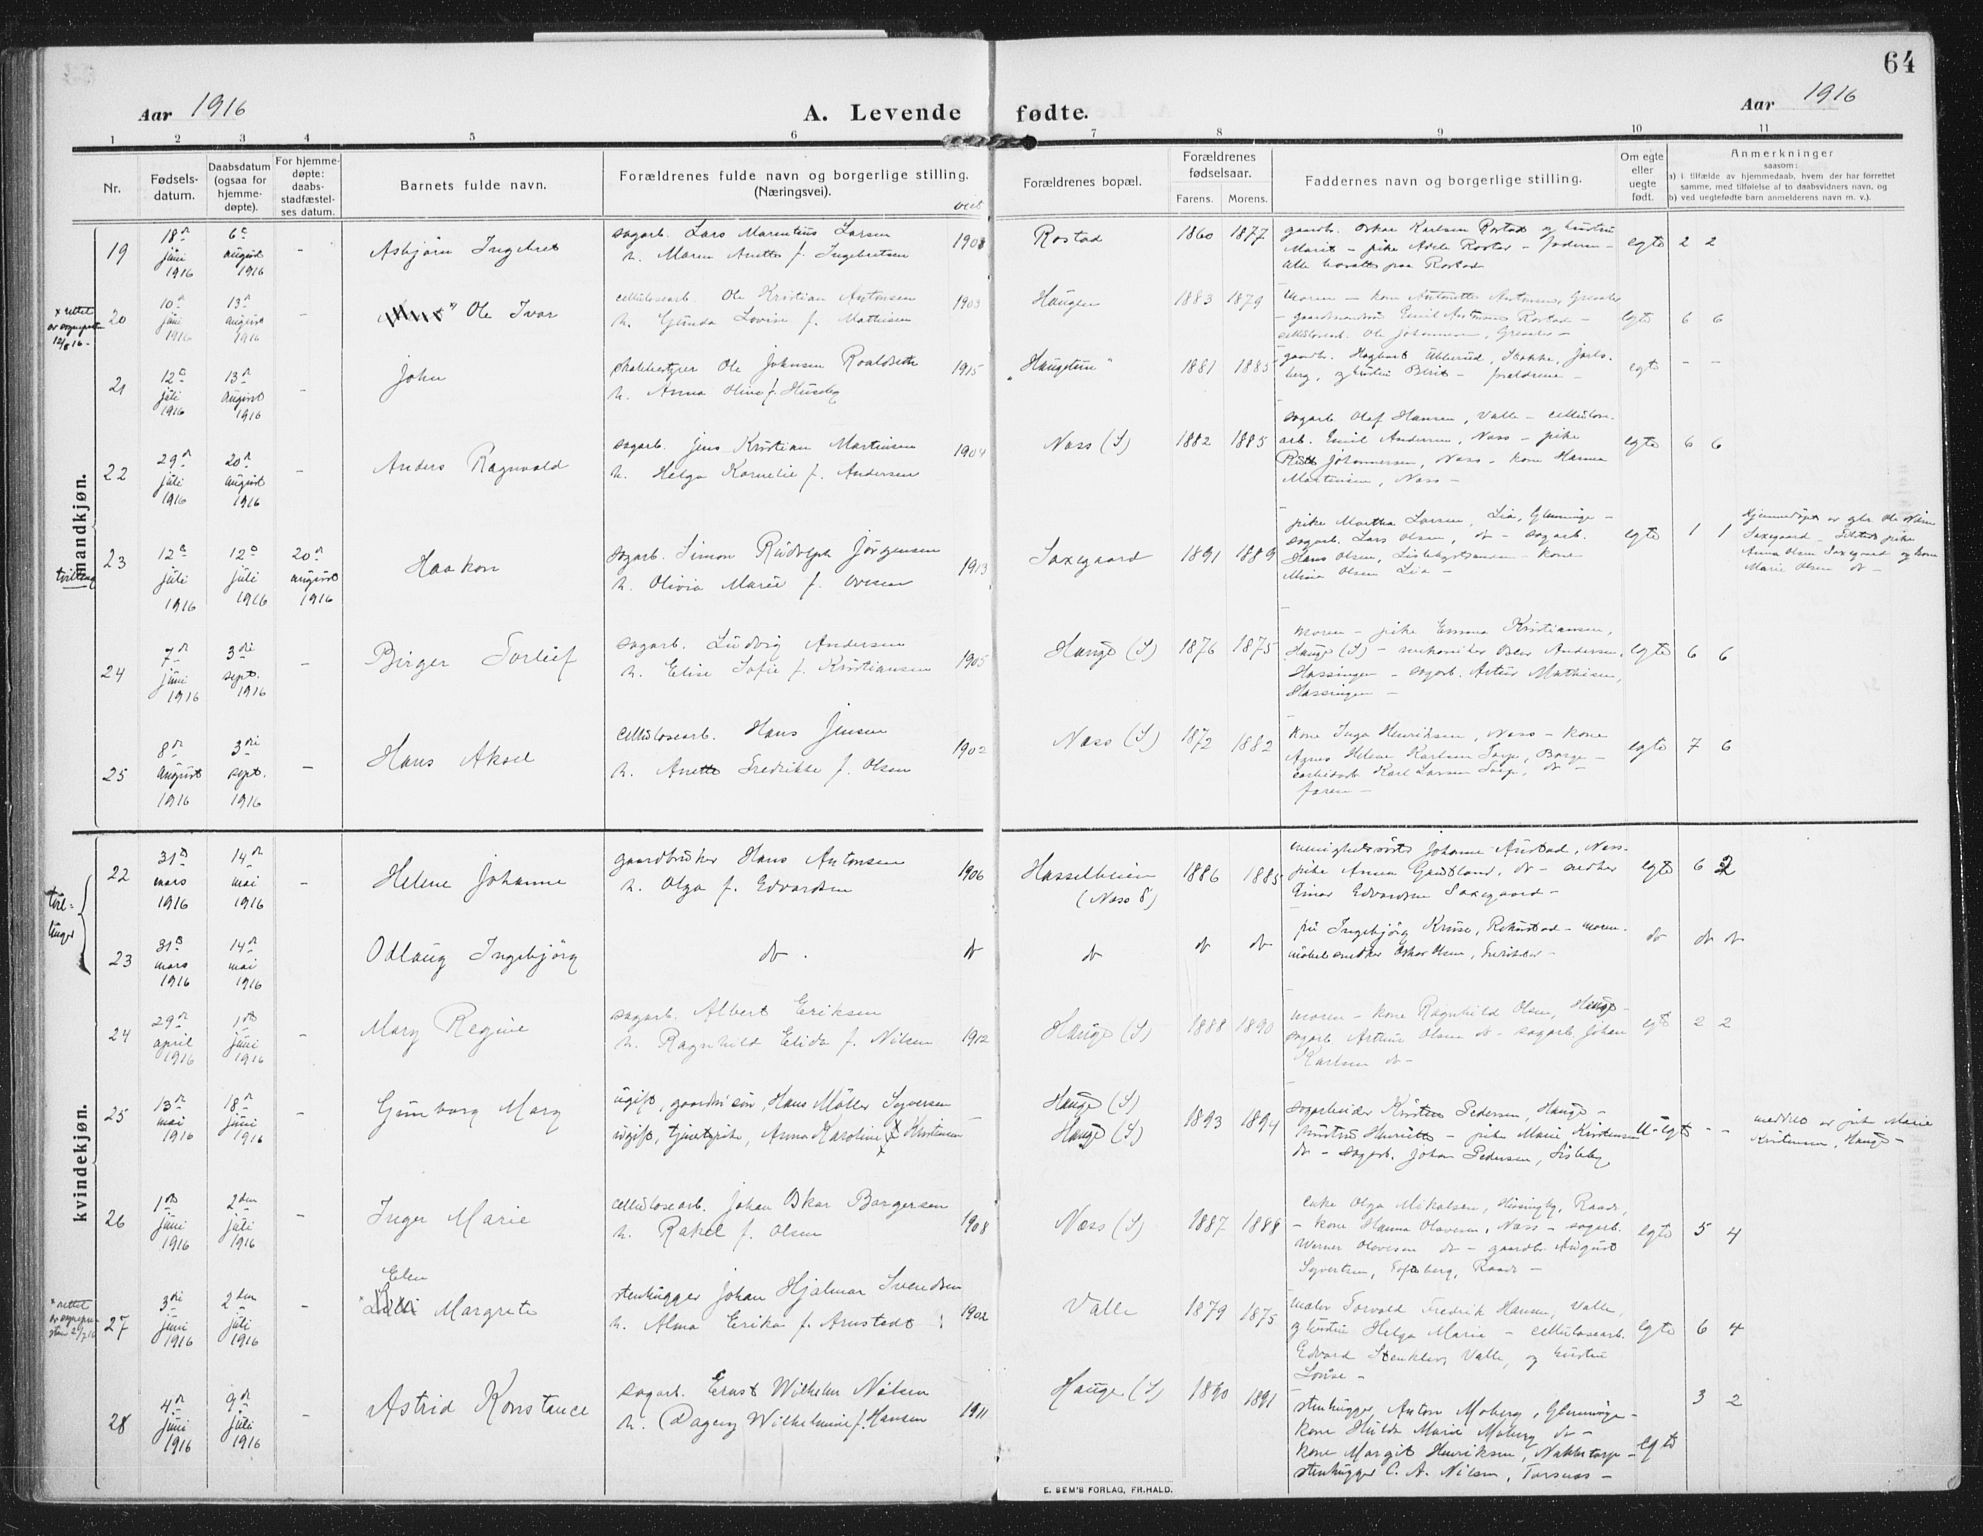 64
Aar 1916
A. Levende fødte.
Aar 1916
1 2 3 4 5 6 7 8 9 10 11
Nr.
Fødsels-
datum.
Daabsdatum
(ogsaa for
hjemme-
døpte).
For hjemme-
døpte:
daabs-
stadfæstel-
ses datum.
Barnets fulde navn.
Forældrenes fulde navn og borgerlige stilling.
(Næringsvei).
viet
Forældrenes bopæl.
Forældrenes
fødselsaar.
Farens. Morens.
Faddernes navn og borgerlige stilling.
Om egte
eller
uegte
født.
Anmerkninger
saasom:
a) i tilfælde av hjemmedaab, hvem der har forrettet
samme, med tilføielse af to daabsvidners navn, og
b) ved uegtefødte barn anmelderens navn m. v.).
mandkjøn.
19
18de
juni
1916
6te
august
1916
-
Asbjørn Ingebret
sagarb. Lars Marentius Larsen
h. Maren Anette f. Ingebretsen
1908
Rostad
1860 1877
gaardbr. Oskar Karlsen Rostad og hustru
Marit - pike Adele Rostad - faderen -
alle bosatte paa Rostad
egte 2 2
x rettet
av sogneprest
12/8 16 -
20
10de
juni
1916
13de
august
1916
-
Ole Ivar
cellulosearb. Ole Kristian Antonsen
h. Gunda Lovise f. Mathisen
1903
Haugen
1883 1879
moren - kone Antonette Antonsen, Greaaker
- gaardmandsøn Emil Antonsen Rostad -
cellulosearb. Ole Johannesen, Greaaker -
egte 6 6
21
12te
juli
1916
13de
august
1916
-
John
skolebestyrer Ole Johnsen Roaldseth
h. Anna Oline f. Huseby
1915
"Haugetun"
1881 1885
gaardb. Hagbart Ubberud, Stokke, Jarls-
berg, og hustru Berit - forældrene -
egte - -
22
29de
juli
1916
20de
august
1916
-
Anders Ragnvald
sagarb. Jens Kristian Martinsen
h. Helga Kornelie f. Andersen
1904
Næss (S)
1882 1885
sagarb. Olaf Hansen, Valle - cellulose-
arb. Emil Andersen, Næss - pike
Ruth Johannesen, Næss - kone Hanna
Martinsen, Næss -
egte 6 6
tvilling
23
12te
juli
1916
12te
juli
1916
20de
august
1916
Haakon
sagarb. Simon Rudolph Jørgensen
h. Olivia Marie f. Ovesen
1913
Saxegaard
1891 1889
pike Martha Larsen, Lia, Glemminge -
sagarb. Lars Olsen, do - sagarb.
Hans Olsen, Lislebystranden - kone
Mina Olsen Lia -
egte 1 1
Hjemmedøpt av gbr. Ole
Saxegaard - pike
Anna Olsen Saxegaard og kone
Marie Olsen do -
24
7de
juni
1916
3die
sept.
1916
-
Birger Torleif
sagarb. Ludvig Andersen
h. Elise Sofie f. Kristiansen
1905
Hauge (S)
1876 1875
moren - pike Emma Kristiansen,
Hauge (S) - mekaniker Oskar Andersen,
Hassingen - sagarb. Artur Mathisen,
Hassingen -
egte 6 6
25
8de
august
1916
3die
sept.
1916
-
Hans Aksel
cellulosearb. Hans Jensen
h. Anette Fredrikke f. Olsen
1902
Næss (S)
1872 1882
kone Inga Henriksen, Næss - kone
Agnes Helene Karlsen Torp, Borge -
arbeider Karl Larsen Torp, do -
faren -
egte 7 6
kvindekjøn.
tvil-
linger
22
31te
mars
1916
14de
mai
1916
-
Helene Johanne
gaardbruker Hans Antonsen
h. Olga f. Edvardsen
1906
Hasselveien
(Næss S)
1886 1885
menighetssøster Johanne Austad, Næss -
pike Anna Gautland, do - snedker
Einar Edvardsen Saxegaard -
egte 6 2
23
31te
mars
1916
14de
mai
1916
Odlaug Ingebjørg
do.
do
do
do do
frk Ingebjørg Kruse, Rekustad - moren -
møbelsnedker Oskar Olsen, Fredrikstad -
do do do
24
29de
april
1916
1ste
juni
1916
-
Mary Regine
sagarb. Albert Eriksen
h. Ragnhild Elida f. Nilsen
1912
Hauge (S)
1888 1890
moren - kone Ragnhild Olsen, Hauge -
sagarb. Arthur Olsen do - sagarb. Johan
Karlsen do -
egte 2 2
25
13de
mai
1916
18de
juni
1916
-
Gunvarg Mary
ugift, gaardbr.søn, Hans Møller Syversen
ugift, tjenestepike, Anna Karoline x Kristensen
-
Hauge (S)
Hauge (S)
1893 1894
sagarbeider Kristen Pedersen, Hauge -
hustru Henriette - pike Marie Kristensen
do - sagarb. Johan Pedersen, Lisleby
U-egte - -
meddelt av pike Marie
Kristensen, Hauge -
26
1ste
juni
1916
2den
juli
1916
-
Inger Marie
cellulosearb. Johan Oskar Borgersen
h. Rakel f. Olsen
1908
Næss (S)
1887 1888
enke Olga Mikalsen, Huseby, Raade,
- kone Hanna Olavesen, Næss - sagarb.
Werner Olavesen do - gaardbr. August
Syvertsen, Tofteberg, Raade -
egte 5 4
x rettet
av sognepre-
sten 2/7 16
27
3die
juni
1916
2den
juli
1916
-
Elen
Margrete
stenhugger Johan Hjalmar Svendsen
h. Alma Erika f. Arnstadt
1902
Valle
1879 1875
maler Torvald Fredrik Hansen, Valle,
og hustru Helga Marie - cellulosearb.
Edvard Stenklev, Valle, og hustru
Lovise -
egte 6 4
28
4de
juni
1916
9de
juli
1916
-
Astrid Konstance
sagarb. Ernst Wilhelm Nilsen
h. Dagny Wilhelmine f. Hansen
1911
Hauge (S)
1890 1891
stenhugger Anton Moberg, Glemminge -
kone Hulda Marie Moberg do -
kone Margit Henriksen, Nabbetorp -
stenhugger C. A. Nilsen, Torsnes -
egte 3 2
E. SEM'S FORLAG, FR.HALD.